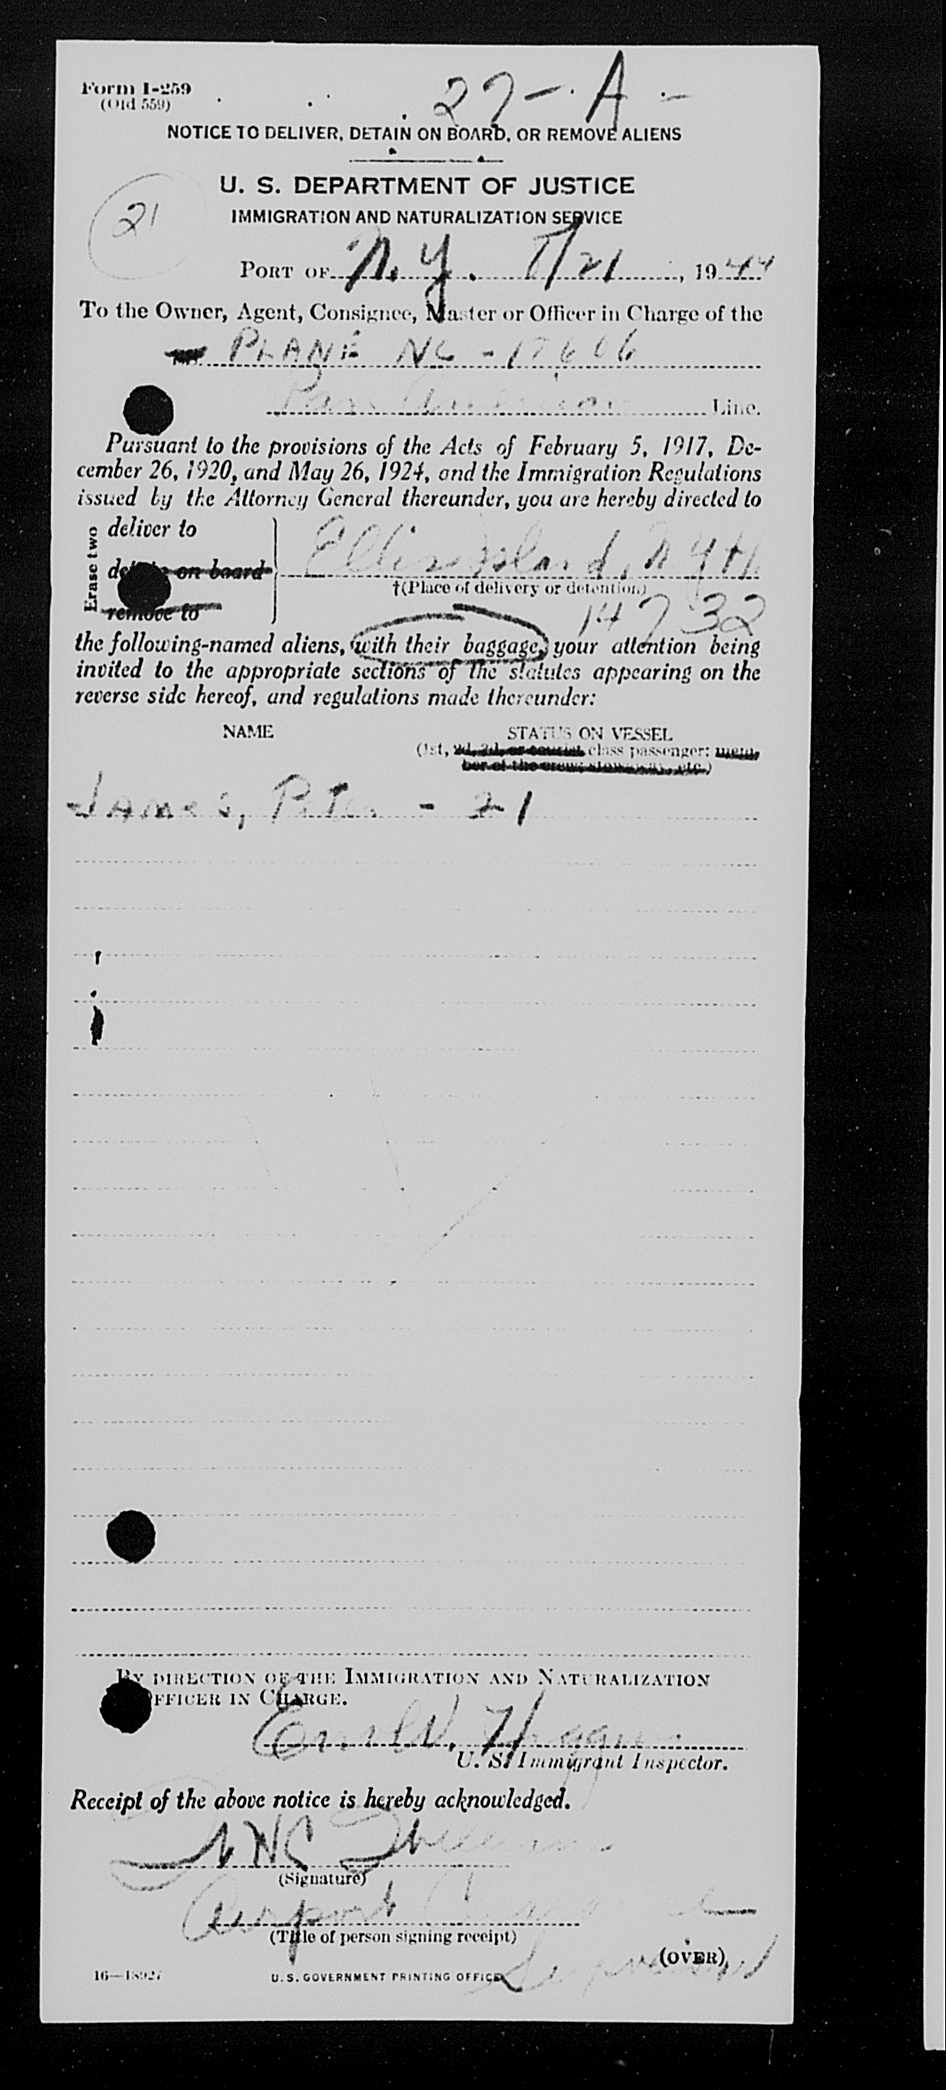 Form I-259
(Old 559)
27-A-
NOTICE TO DELIVER, DETAIN ON BOARD, OR REMOVE ALIENS
U. S. DEPARTMENT OF JUSTICE
21
IMMIGRATION AND NATURALIZATION SERVICE
PORT OF N.Y. /21, 1944
To the Owner, Agent, Consignee, Master or Officer in Charge of the
PLANE NC-18606
Pan American Line.
Pursuant to the provisions of the Acts of February 5, 1917, De-
cember 26, 1920, and May 26, 1924, and the Immigration Regulations
issued by the Attorney General thereunder, you are hereby directed to
Erase two
deliver to
detain on board
remove to
Ellis Island, N.Y.H.
†(Place of delivery or detention)
14732
the following-named aliens, with their baggage, your attention being
invited to the appropriate sections of the statutes appearing on the
reverse side hereof, and regulations made thereunder:
NAME STATUS ON VESSEL
(1st, 2d, 3d, or tourist class passenger; mem-
ber of the crew; stowaway, etc.)
James, Peter - 21
BY DIRECTION OF THE IMMIGRATION AND NATURALIZATION
OFFICER IN CHARGE.
U. S. Immigrant Inspector.
Receipt of the above notice is hereby acknowledged.
(Signature)
Airport
(Title of person signing receipt)
(OVER)
16—18927 U. S. GOVERNMENT PRINTING OFFICE